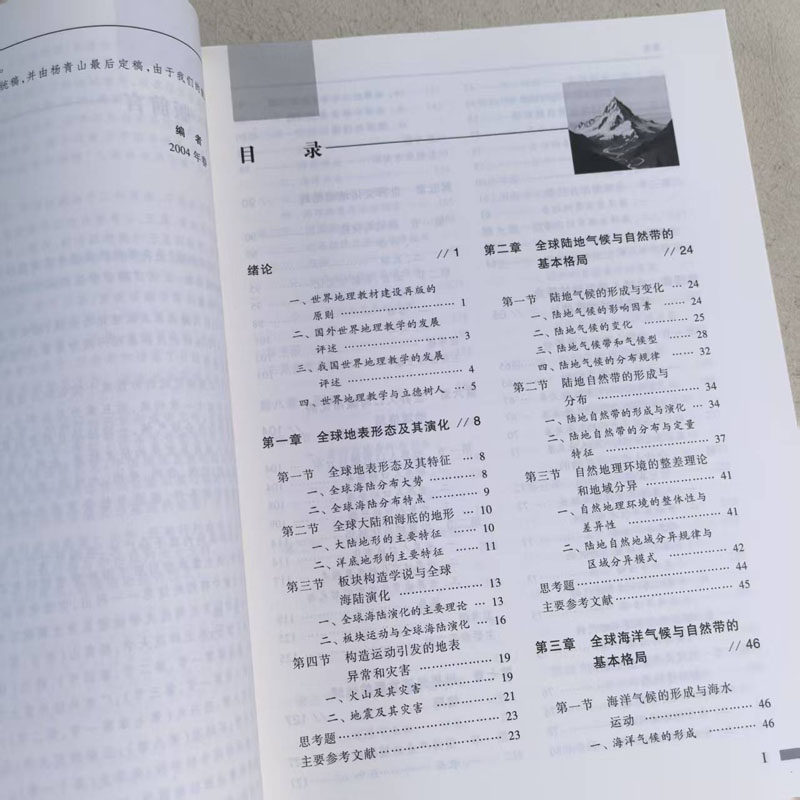 统稿,并由杨青山最后定稿,由于我们的
编 者
2004 年春
目 录
绪论 // 1
一、世界地理教材建设再版的
原则 …………………… 1
二、国外世界地理教学的发展
评述 …………………… 3
三、我国世界地理教学的发展
评述 …………………… 4
四、世界地理教学与立德树人 … 5
第一章 全球地表形态及其演化 // 8
第一节 全球地表形态及其特征 … 8
一、全球海陆分布大势 ……… 8
二、全球海陆分布特点 ……… 9
第二节 全球大陆和海底的地形 … 10
一、大陆地形的主要特征 …… 10
二、洋底地形的主要特征 …… 11
第三节 板块构造学说与全球
海陆演化 ……………… 13
一、全球海陆演化的主要理论 … 13
二、板块运动与全球海陆演化 … 16
第四节 构造运动引发的地表
异常和灾害 …………… 19
一、火山及其灾害 …………… 19
二、地震及其灾害 …………… 21
思考题 ………………………… 23
主要参考文献 ………………… 23
第二章 全球陆地气候与自然带的
基本格局 // 24
第一节 陆地气候的形成与变化 … 24
一、陆地气候的影响因素 …… 24
二、陆地气候的变化 ………… 25
三、陆地气候带和气候型 …… 28
四、陆地气候的分布规律 …… 32
第二节 陆地自然带的形成与
分布 …………………… 34
一、陆地自然带的形成与演化 … 34
二、陆地自然带的分布与定量
特征 …………………… 37
第三节 自然地理环境的整差理论
和地域分异 …………… 41
一、自然地理环境的整体性与
差异性 ………………… 41
二、陆地自然地域分异规律与
区域分异模式 ………… 42
思考题 ………………………… 44
主要参考文献 ………………… 45
第三章 全球海洋气候与自然带的
基本格局 // 46
第一节 海洋气候的形成与海水
运动 …………………… 46
一、海洋气候的形成 ………… 46
I